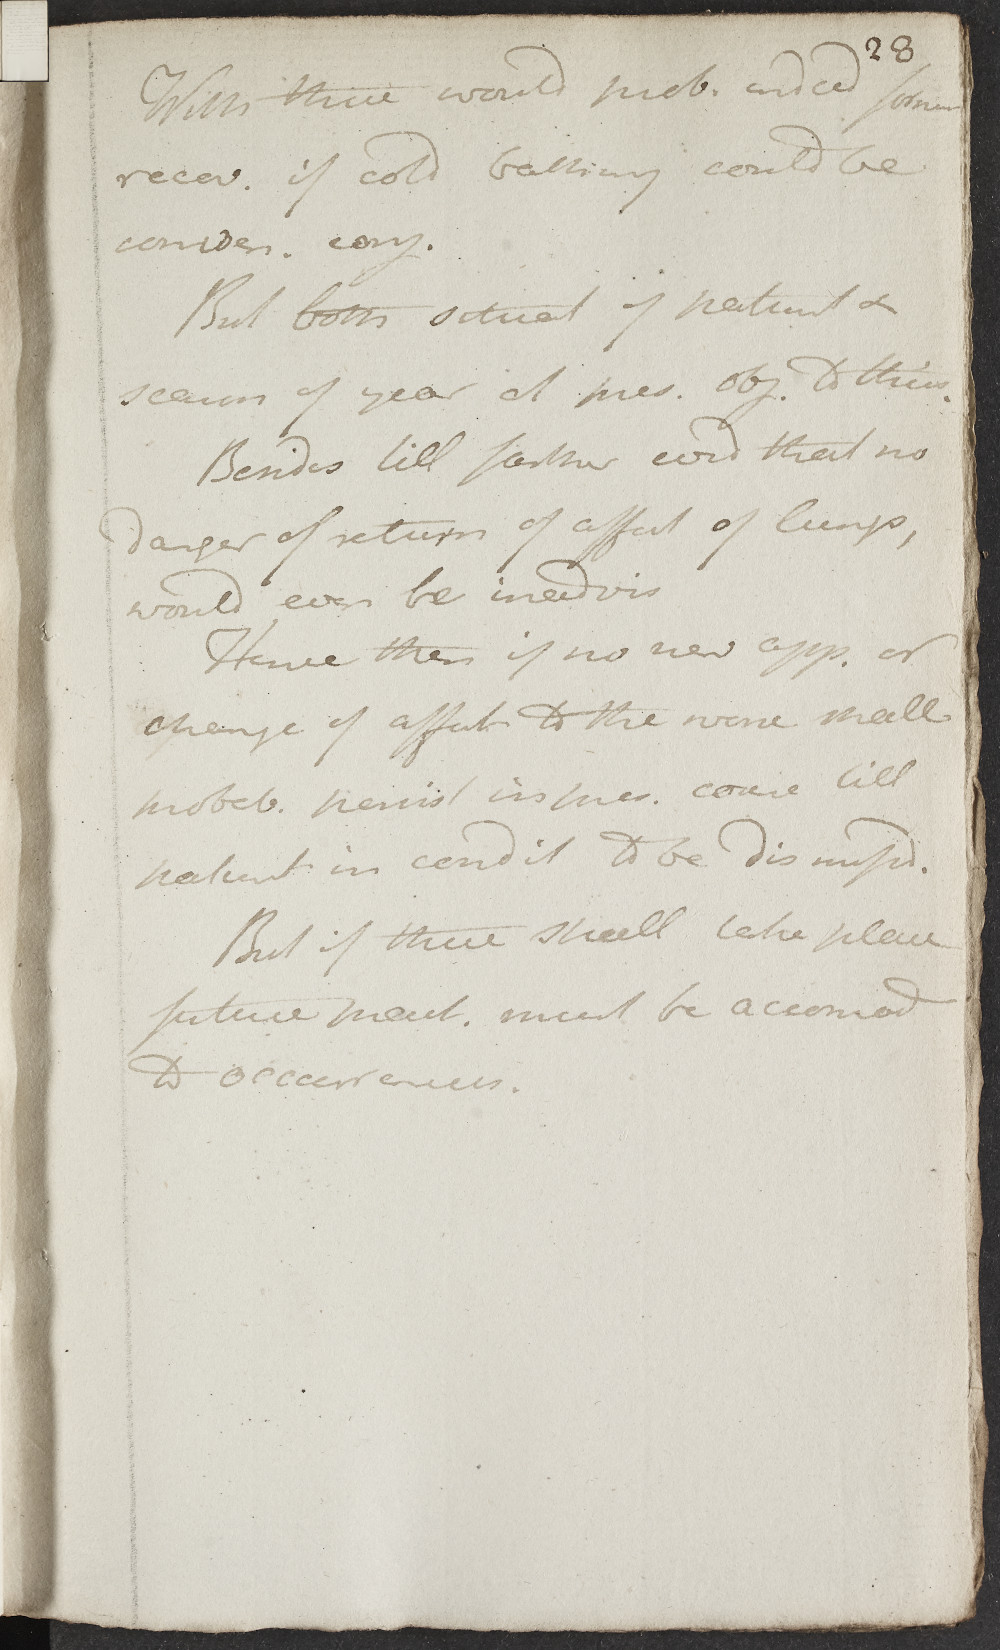 28
With these would prob. indeed former
recov. if cold bathing could be
convен. conj.
But both situat of patient &
season of year at pres. obj. to this.
Besides till farther evid that no
danger of return of affect of lungs,
would even be inadvis
Hence then if no new app. or
change of affect to the worse shall
probab. persist in pres. course till
patient in condit to be dismissd.
But if these shall take place
future pract. must be accomod
to occurrences.